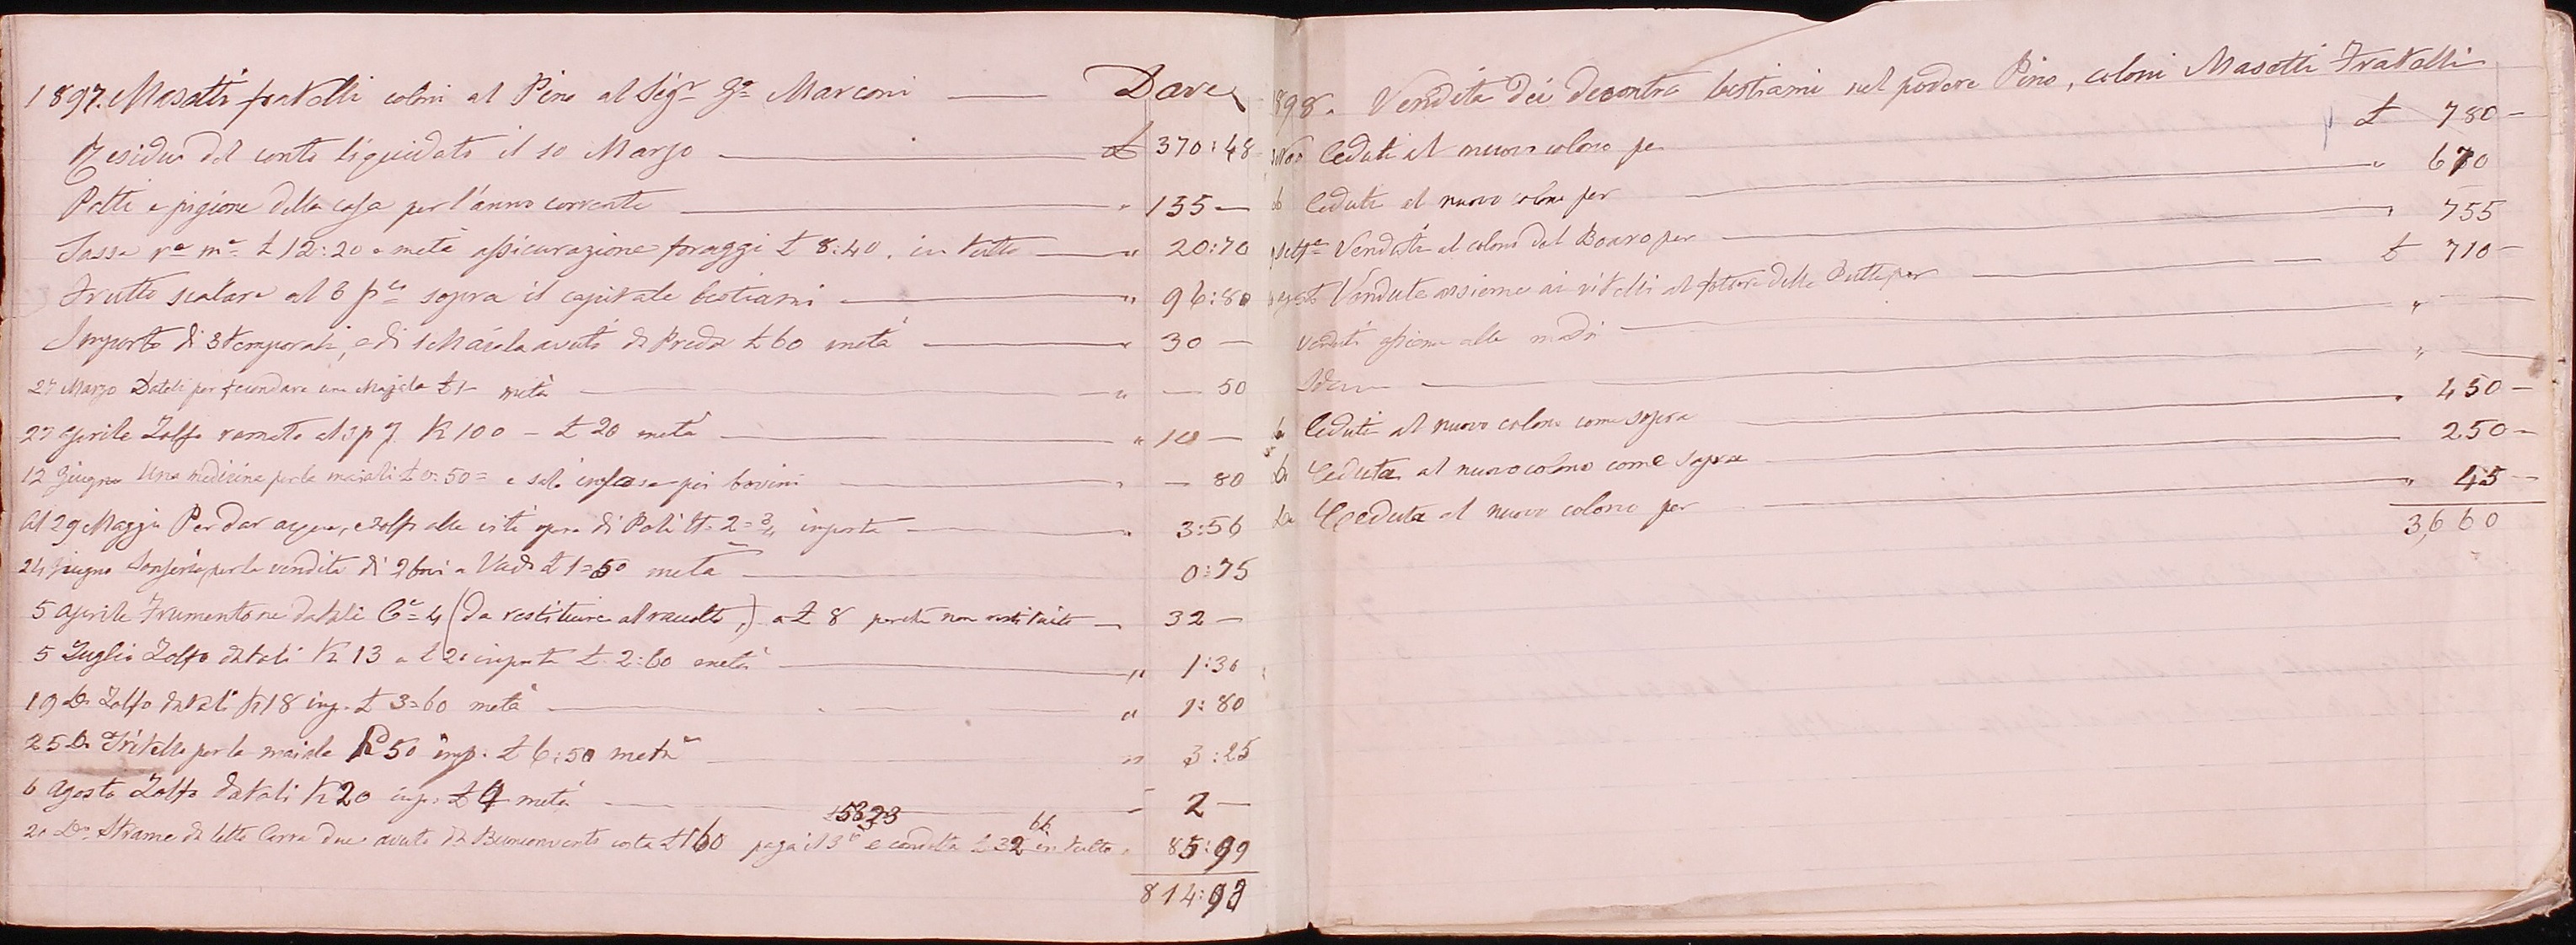 1897. Masotti fratelli coloni al Pino al Sigr Gn Marconi — Dare
Residuo del conto liquidato il 10 Marzo — £ 370:48
Patti e pigione della casa per l'anno corrente — " 135 —
Tassa ra ma £ 12:20 e metà assicurazione foraggi £ 8:40. in tutto — " 20:70
Frutto scalare al 6 p% sopra il capitale bestiami — " 96:80
Importo di 3 temporali, e di 1 Maiala avuti da Preda £ 60 metà — " 30 —
27 Marzo Datoli per fecondare una Majala £ 1- metà — " — 50
27 Aprile Zolfo ramato al 3 p % K 100 - £ 20 metà — " 10 —
12 Giugno Una medicina per le maiali £ 0:50 = e sale inglese pei bovini — " — 80
Al 29 Maggio Per dar acqua, e zolfo alle viti opere di Poli N. 2=3/4 importa — " 3:56
24 Giugno Senseria per la vendita di 2 bovi a Vado £ 1=50 metà — 0:75
5 Aprile Frumentone datoli Ce = 4 (da restituire al raccolto,) a £ 8 perchè non restituito — 32 —
5 Luglio Zolfo datoli K 13 a £ 20 importa £. 2:60 metà — " 1:30
19 Do Zolfo datoli K 18 imp. £ 3=60 metà — " 1:80
25 Do Tritello per la maiale K 50 imp. £ 6:50 metà — " 3:25
6 Agosto Zolfo datoli K 20 imp: £ 4 metà — 2 —
20 Do Strame da letto Carra due avuto da Bonconvento costa £ 160 paga il 3o £ 53,33 e condotta £ 32 66 in tutto " 85:99
814:93
1898. Vendita dei decontro bestiami nel podere Pino, coloni Masotti Fratelli
Ceduti al nuovo colono pe £ 780 —
Do Ceduti al nuovo colono per — " 670
Venduti al colono del Boaro per — " 755
Agosto Vendute assieme ai vitelli al fattore della per — £ 710 —
Venduti assieme alle madri — " —
Idem — " —
Do Ceduti al nuovo colono come sopra — 450 —
Do Ceduta al nuovo colono come sopra — 250 —
Do Ceduta al nuovo colono per — " 45 —
3,660